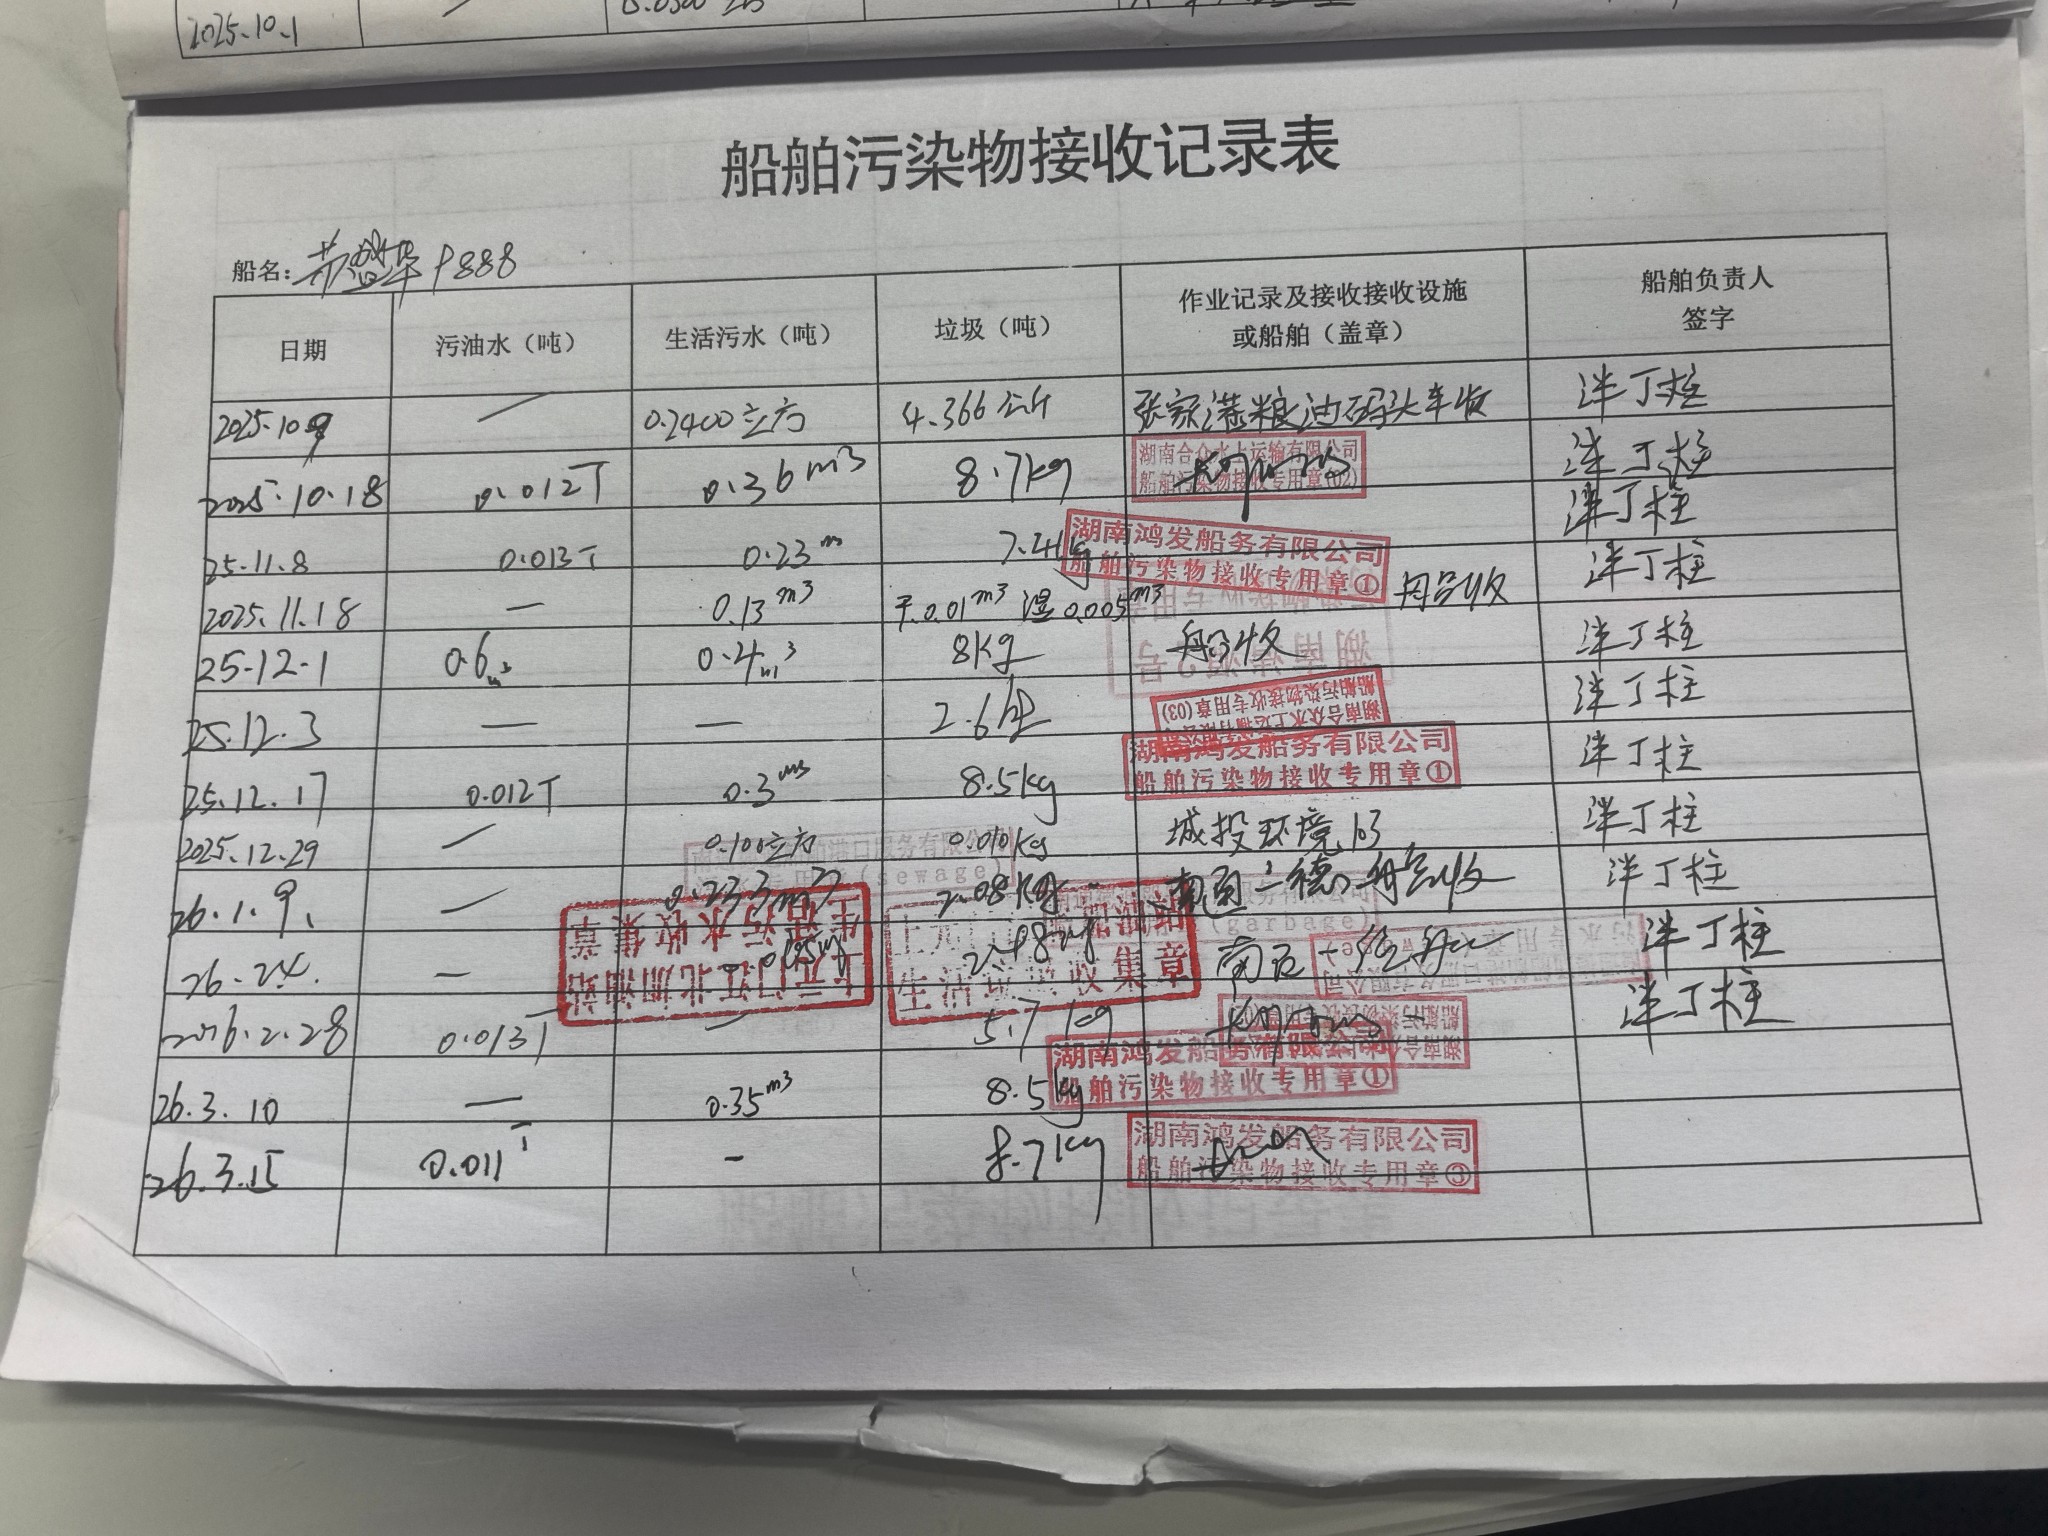 2025.10.1
船舶污染物接收记录表
船名: P888
日期 污油水（吨） 生活污水（吨） 垃圾（吨） 作业记录及接收接收设施或船舶（盖章） 船舶负责人签字
2025.10.9 — 0.2400立方 4.366公斤 张家港粮油码头车收 洋丁柱
2025.10.18 0.012T 0.36m3 8.7kg 湖南合众水上运输有限公司 船舶污染物接收专用章(02) 洋丁柱
25.11.8 0.013T 0.23m 7.21kg 湖南鸿发船务有限公司 船舶污染物接收专用章① 洋丁柱
2025.11.18 — 0.13m3 干0.01m3 湿0.005m3 船收 洋丁柱
25-12-1 0.6m3 0.4m3 8kg 船收 洋丁柱
25.12.3 — — 2.6 湖南合众水上运输有限公司 船舶污染物接收专用章(03) 洋丁柱
25.12.17 0.012T 0.3m3 8.5kg 湖南鸿发船务有限公司 船舶污染物接收专用章① 洋丁柱
2025.12.29 — 0.100立方 0.010kg 城投环境103 洋丁柱
26.1.9. — 0.233m3 2.08kg 南通 洋丁柱
26.2.4. — 洋丁柱
上元门江北加油站
生活污水收集章
生活垃圾收集章
2026.2.28 0.013T — 5.7kg 洋丁柱
26.3.10 — 0.35m3 8.5kg 湖南鸿发船务有限公司 船舶污染物接收专用章①
26.3.15 0.011T - 8.7kg 湖南鸿发船务有限公司 船舶污染物接收专用章③